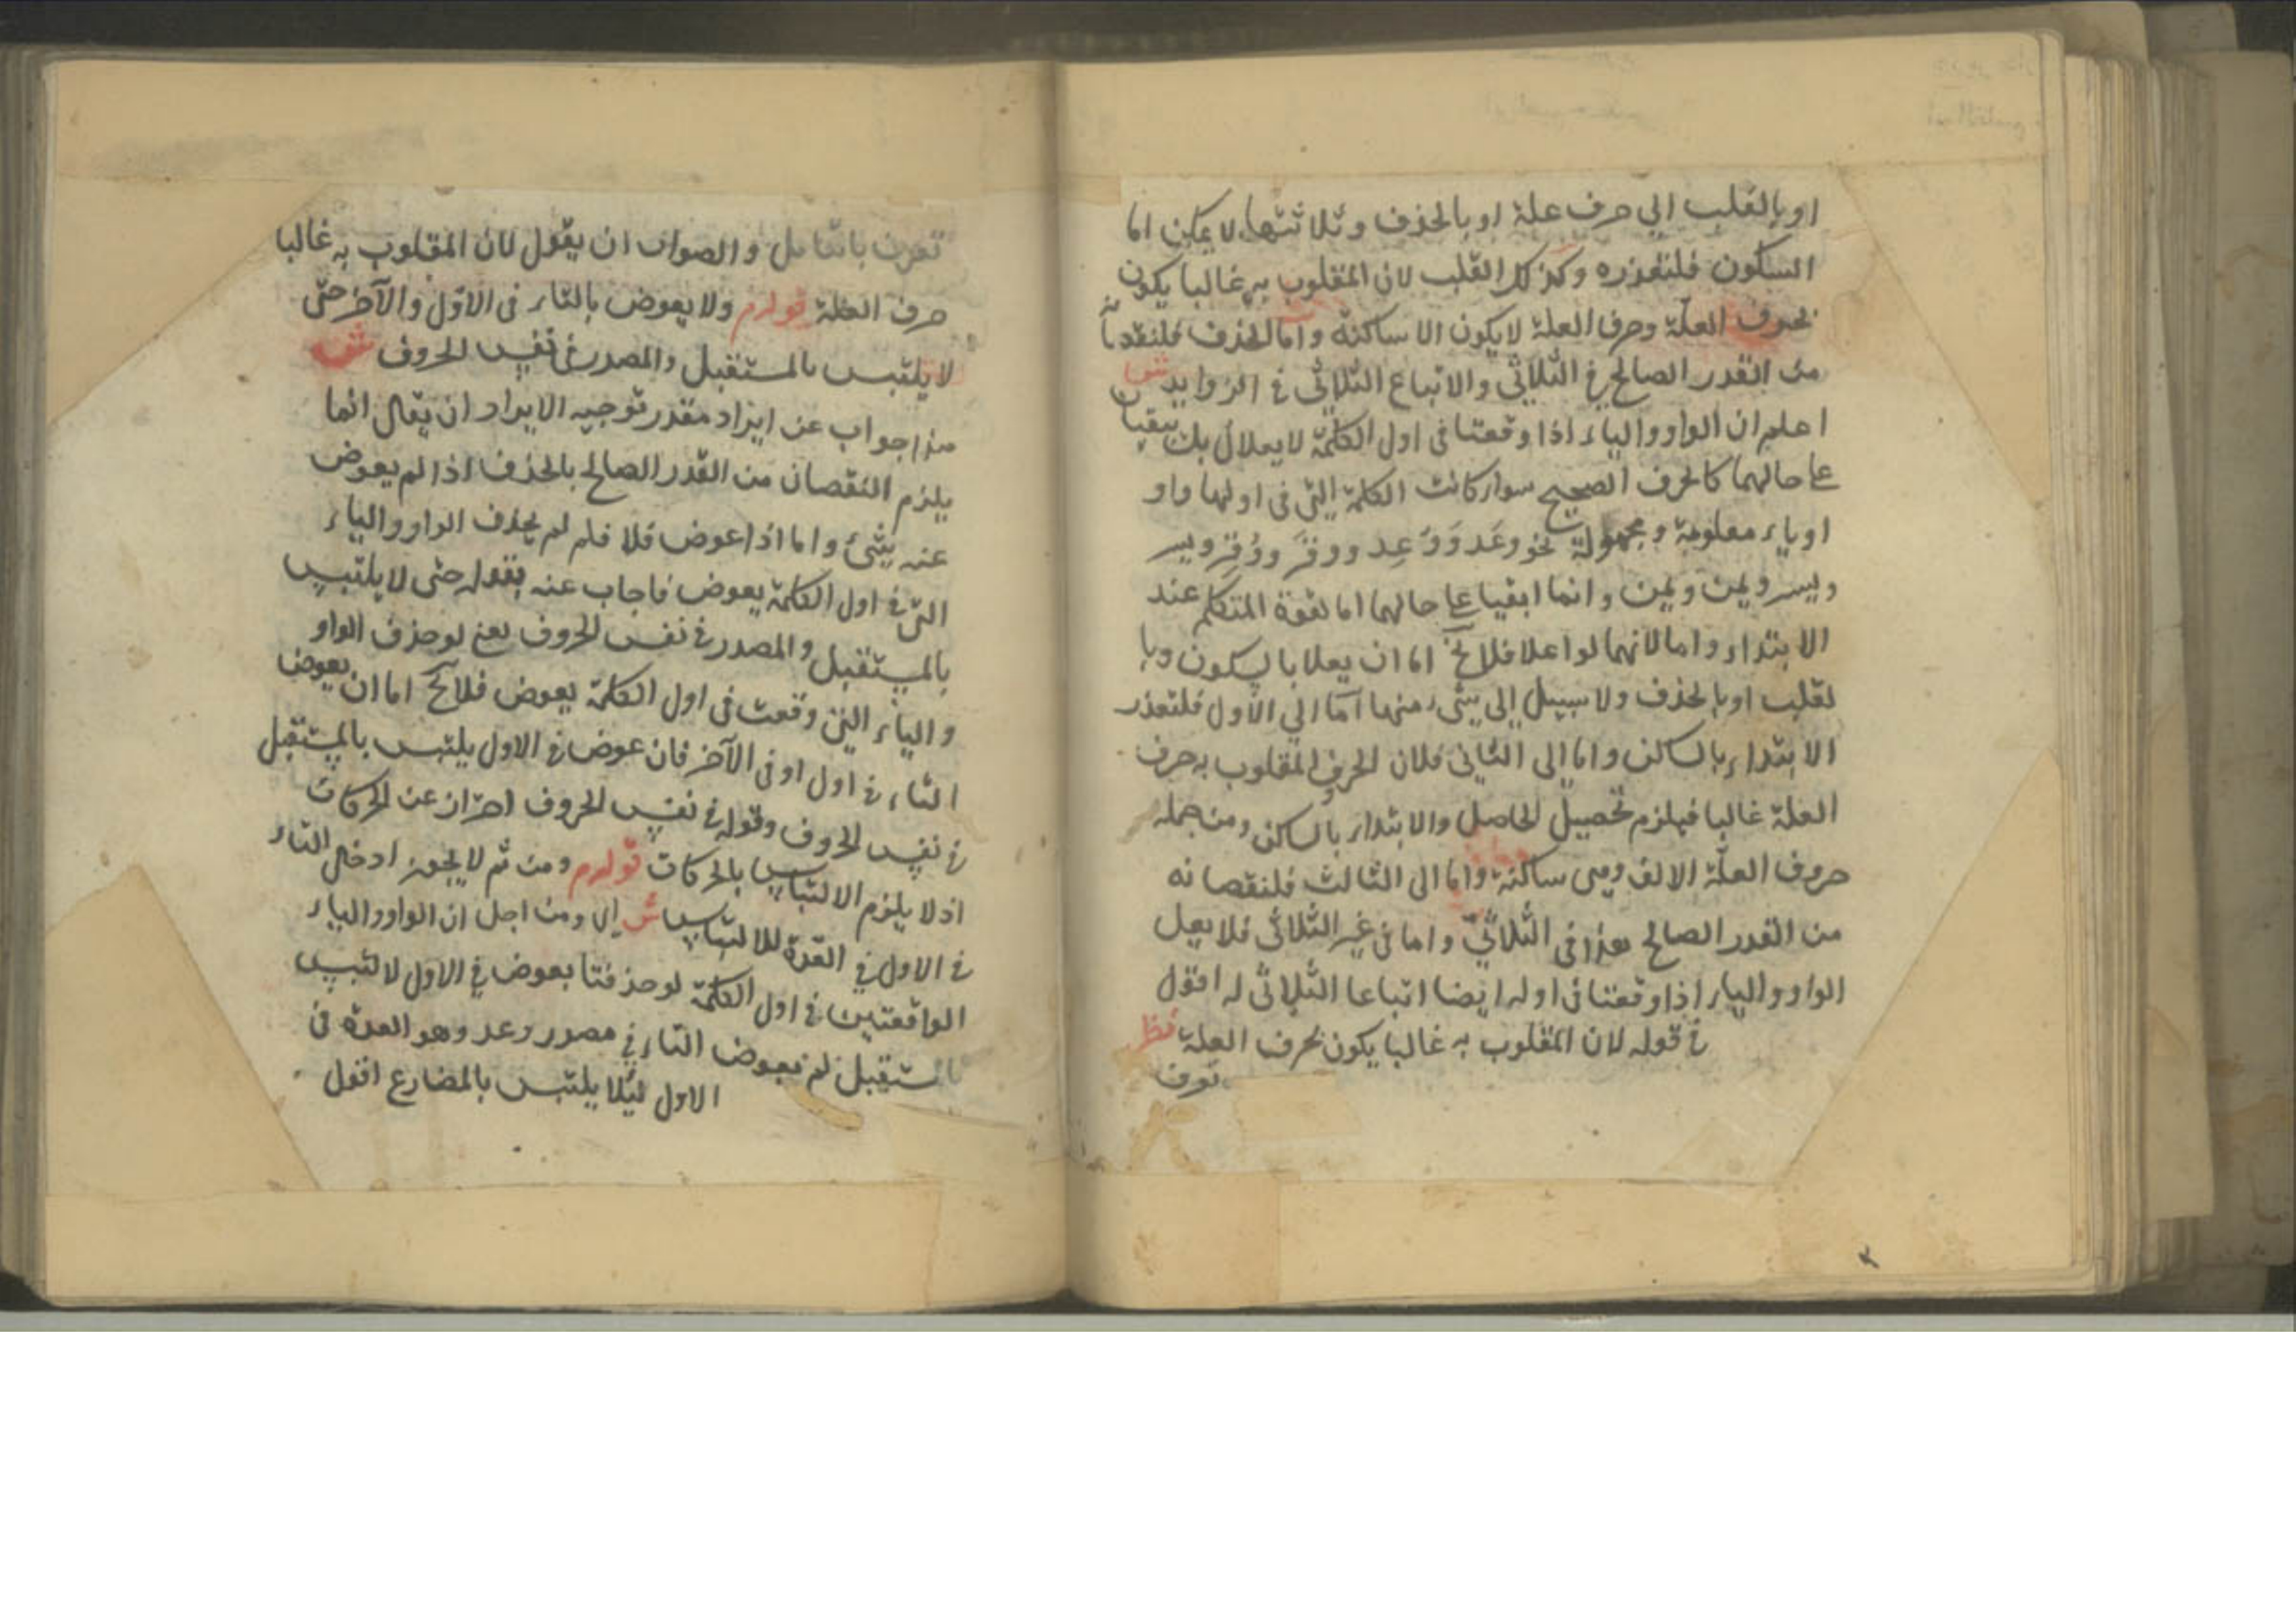 او بالقلب الي حرف علة او بالحذف وثلاثتها لا يمكن اما
السكون فلتعذره وكذلك القلب لان المقلوب به غالبا يكون
بحروف العلّة وحرف العلة لا يكون الا ساكنة واما الحذف فلنقصانه
من القدر الصالح في الثلاثي والاتباع الثلاثي في الزوايد ش
اعلم ان الواو والياء اذا وقعتا في اول الكلمة لا يعلان بل يبقيان
على حالهما كالحرف الصحيح سواء كانت الكلمة التي في اولها واو
او ياء معلومة ومجهولة نحو وعَد وَوُعِد ووقَر ووُقِر ويسر
ويسر ويمن ويمن وانما ابقيا على حالهما اما لقوة المتكلم عند
الابتداء واما لانهما لو اعلا فلا يخ اما ان يعلا بالسكون وبا
لقلب او بالحذف ولا سبيل الى شيء منها امّا الي الاول فلتعذر
الابتداء بالساكن واما الى الثاني فلان الحرف المقلوب به حرف
العلة غالبا فيلزم تحصيل الحاصل والابتداء بالساكن ومن جملة
حروف العلّة الالف وهي ساكنة واما الى الثالث فلنقصانه
من القدر الصالح هذا في الثلاثي واما في غير الثلاثي فلا يعل
الواو والياء اذا وقعتا في اوله ايضا اتباعا الثلاثي له اقول
في قوله لان المقلوب به غالبا يكون بحرف العلة نظر
تعرف
تعرف بالتامل والصواب ان يقول لان المقلوب به غالبا
حرف العلة قولہ م ولا يعوض بالتاء في الاوّل والآخر حتّى
لا يلتبس بالمستقبل والمصدر في نفس الحروف ش
هذا جواب عن ايراد مقدر توجيه الايراد ان يقال انما
يلزم النقصان من القدر الصالح بالحذف اذا لم يعوض
عنه شئ واما اذا عوض فلا فلم لم يحذف الواو والياء
التي في اول الكلمة يعوض فاجاب عنه بقوله حتى لا يلتبس
بالمستقبل والمصدر في نفس الحروف يعني لو حذف الواو
والياء التي وقعت في اول الكلمة يعوض فلا يخ اما ان يعوض
التاء في اول او في الآخر فان عوض في الاول يلتبس بالمستقبل
في نفس الحروف وقوله في نفس الحروف احتراز عن الحركات
اذ لا يلزم الالتباس بالحركات قولہ م ومن ثم لا يجوز ادخال التاء
في الاول في العدة للالتباس ش اي ومن اجل ان الواو والياء
الواقعتين في اول الكلمة لو حذفتا بعوض في الاول لالتبس
بالمستقبل لم يعوض التاء في مصدر وعد وهو العدة في
الاول لئلا يلتبس بالمضارع اقول